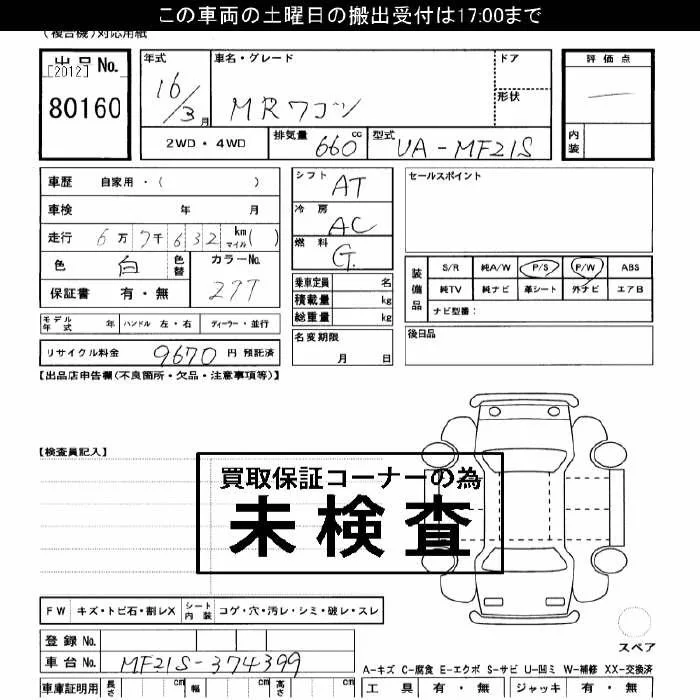 この車両の土曜日の搬出受付は17:00まで
(複合機)対応用紙
出品 No.
[2012]
80160
年式
16/3月
車名・グレード
MRワゴン
ドア
形状
評価点
内装
2WD・4WD
排気量 660 cc
型式 UA-MF21S
車歴 自家用・( )
車検 年 月
走行 6万7千632 km マイル( )
色 白 色替 カラーNo. 27T
保証書 有・無
シフト AT
冷房 AC
燃料 G.
乗車定員 名
積載量 kg
総重量 kg
セールスポイント
装備品
S/R 純A/W P/S P/W ABS
純TV 純ナビ 革シート 外ナビ エアB
ナビ型番:
モデル年式 年 ハンドル 左・右 ディーラー・並行
名変期限
月 日
後日品
リサイクル料金 9670 円 預託済
【出品店申告欄(不良箇所・欠品・注意事項等)】
【検査員記入】
買取保証コーナーの為
未検査
FW キズ・トビ石・割レX シート内装 コゲ・穴・汚レ・シミ・破レ・スレ
スペア
登録 No.
車台 No. MF21S-374399
A-キズ C-腐食 E-エクボ S-サビ U-凹ミ W-補修 XX-交換済
車庫証明用 長さ cm 幅 cm 高さ cm
工具 有・無 ジャッキ 有・無